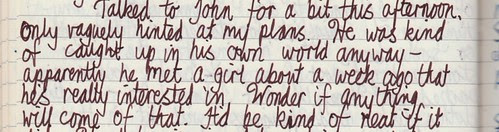 Talked to John for a bit this afternoon.
Only vaguely hinted at my plans. He was kind
of caught up in his own world anyway -
apparently he met a girl about a week ago that
he's really interested in. Wonder if anything
will come of that. It'd be kind of neat if it